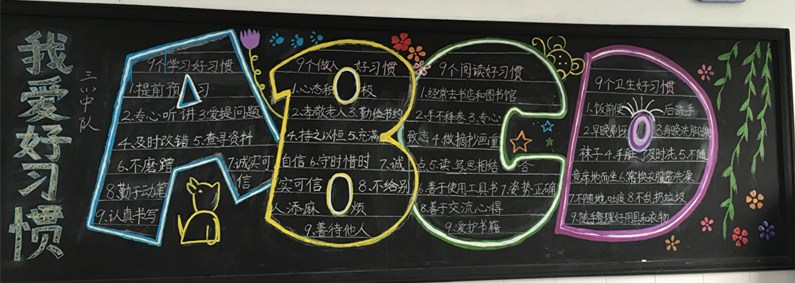 我爱好习惯
三(1)中队
ABCD
9个学习好习惯
1.提前预习
2.专心听讲 3.爱提问题
4.及时改错 5.查寻资料
6.不磨蹭
7.诚实可信
8.勤于动笔
9.认真书写
9个做人好习惯
1.心态积极
2.孝敬老人 3.勤俭节约
4.持之以恒 5.充满
自信 6.守时惜时
7.诚实可信 8.不给别
人添麻烦
9.善待他人
9个阅读好习惯
1.经常去书店和图书馆
2.手不释卷 3.专心致志
4.做摘抄画重点
5.读、写、思相结合
6.善于使用工具书 7.姿势正确
8.善于交流心得
9.爱护书籍
9个卫生好习惯
1.饭前便后洗手
2.早晚刷牙 3.每晚洗脚换
袜子 4.手脏了及时洗 5.不随
意席地而坐 6.常换衣服常洗澡
7.不随地吐痰 8.不乱扔垃圾
9.随手整理好用具和衣物